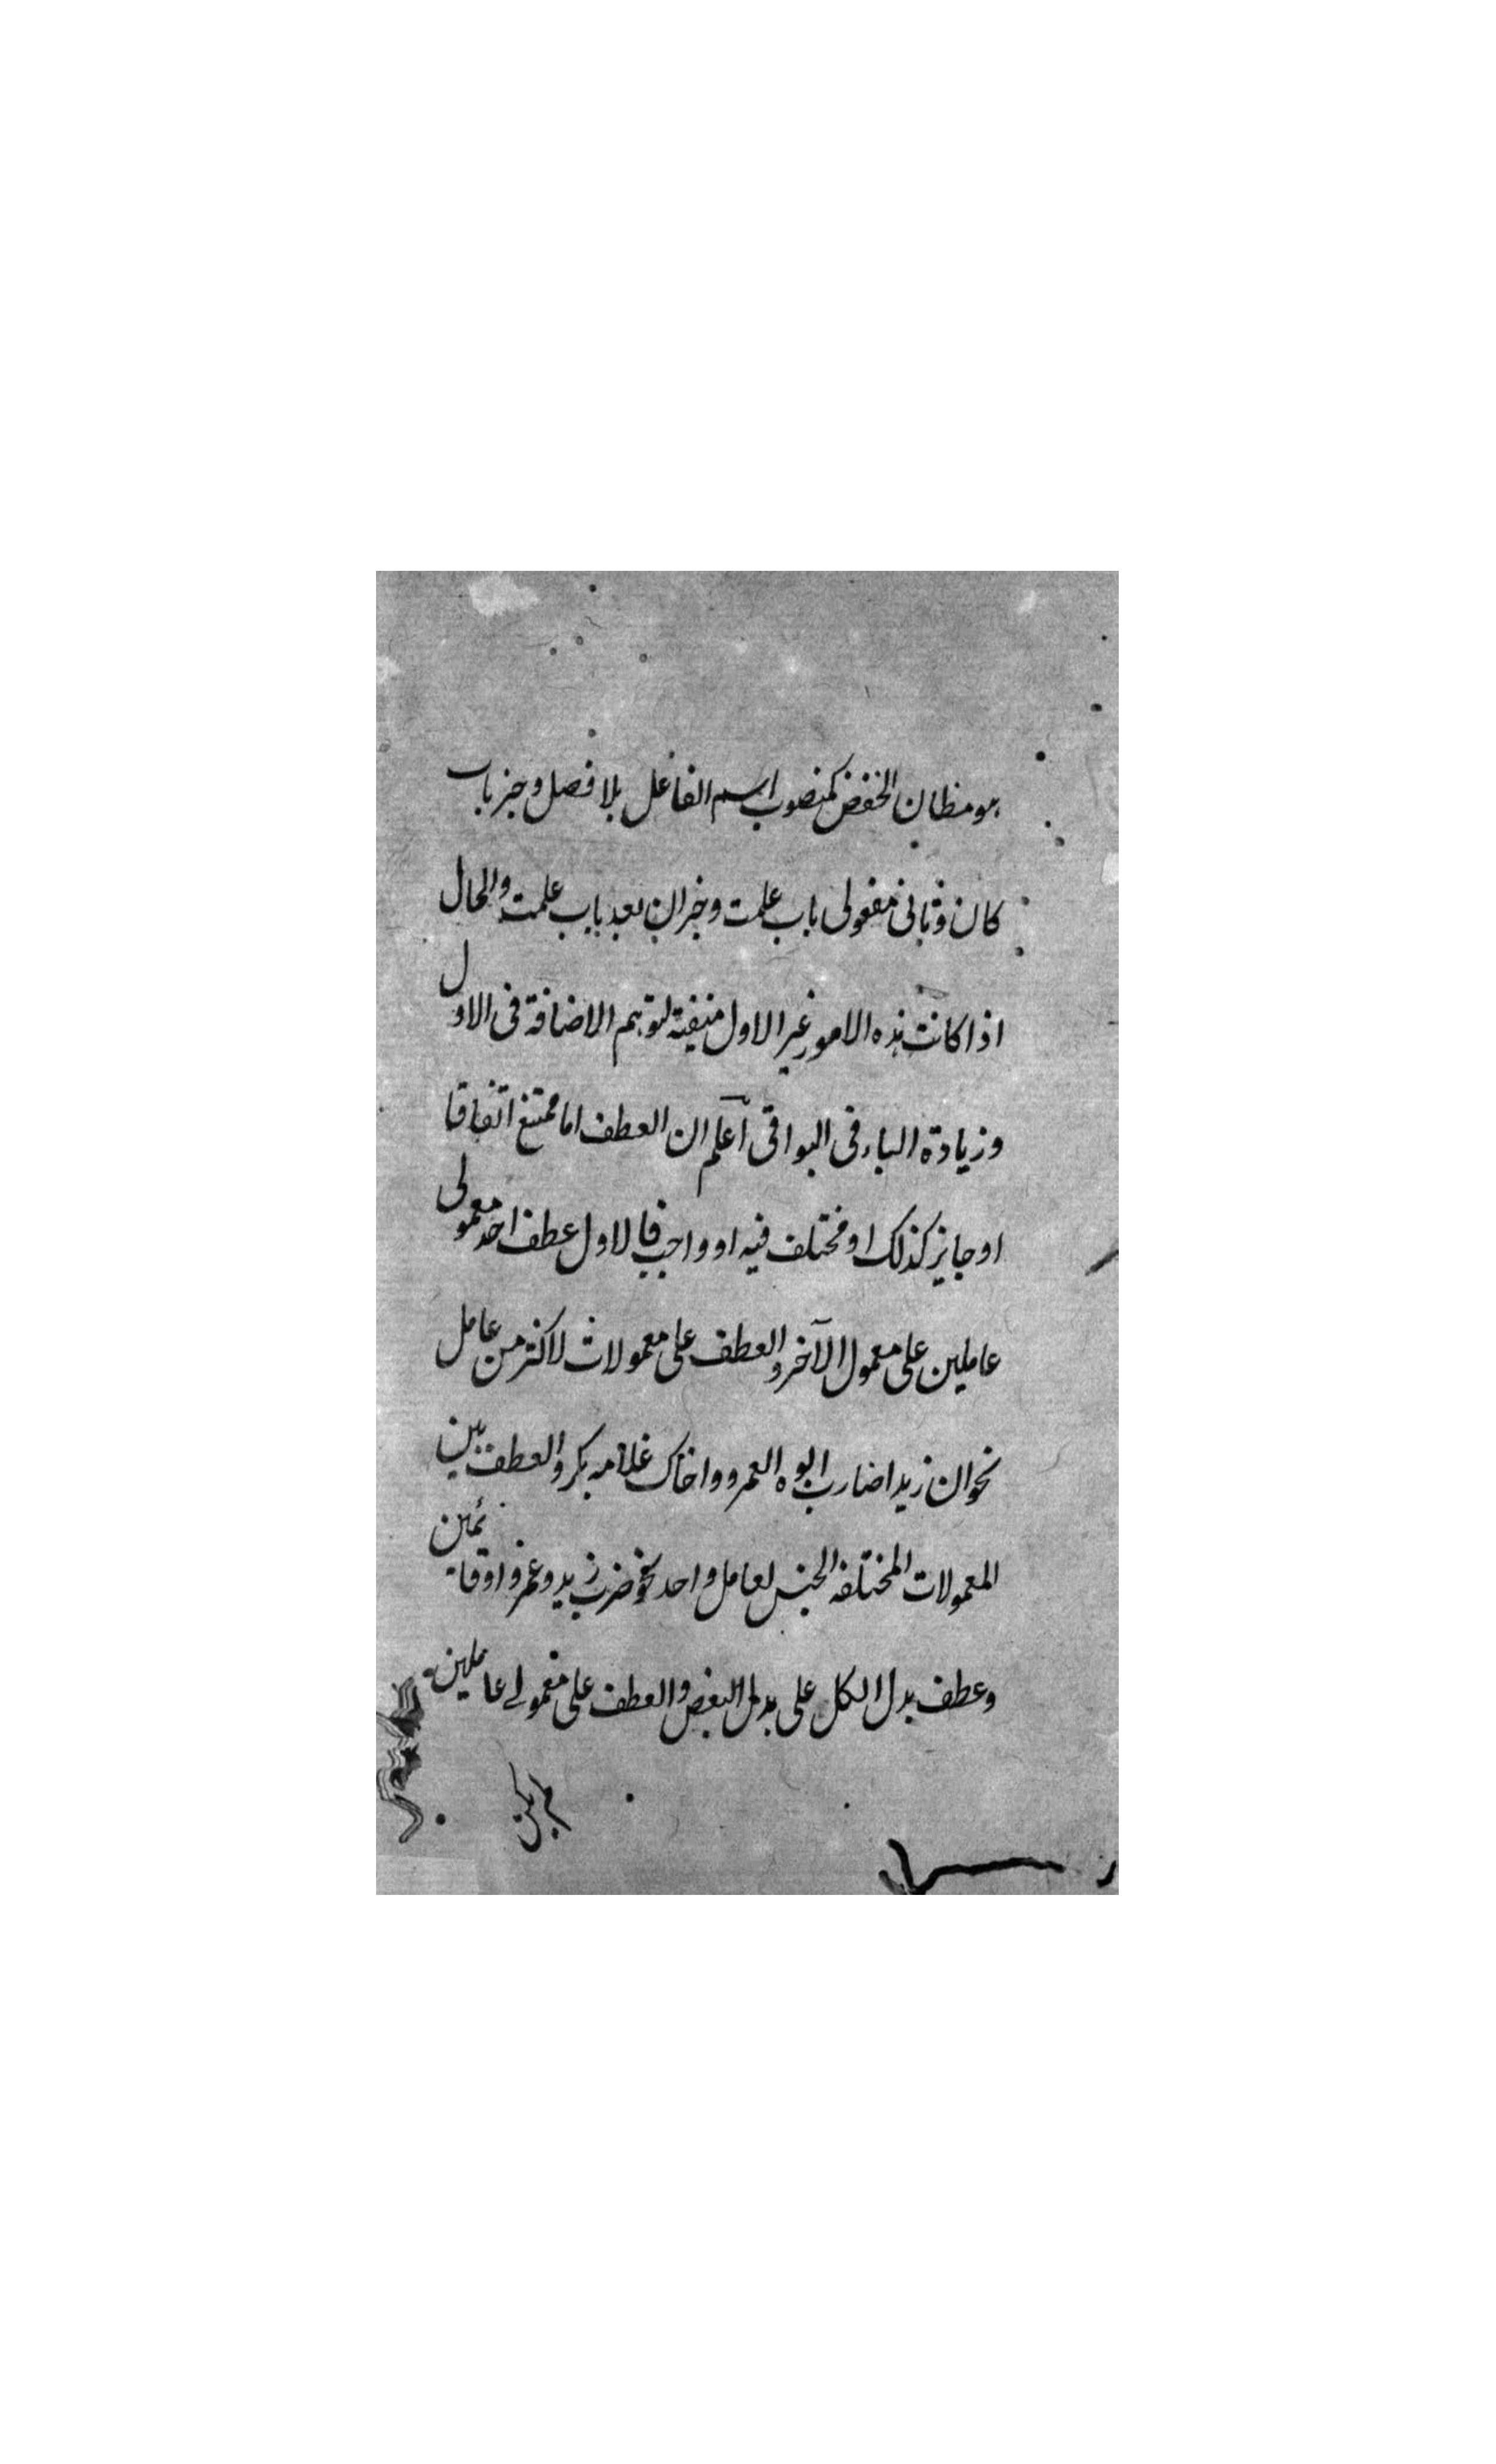 هو مظان الخفض كمنصوب اسم الفاعل بلا فصل وخبر باب
كان وثانى مفعولى باب علمت وخبر ان بعد باب علمت والحال
اذا كانت هذه الامور غير الاول منفية لتوهم الاضافة فى الاول
وزيادة الباء فى البواقى اعلم ان العطف اما ممتنع اتفاقا
او جايز كذلك او مختلف فيه او واجب فالاول عطف احد معمولى
عاملين على معمول الآخر والعطف على معمولات لاكثر من عامل
نحو ان زيدا ضارب ابوه العمرو واخاك غلامه بكر والعطف بين
المعمولات المختلفه الجنس لعامل واحد نحو ضرب زيد وعمرو اوقائمين
وعطف بدل الكل على بدل البعض والعطف على معمولے عاملين
لم يكن